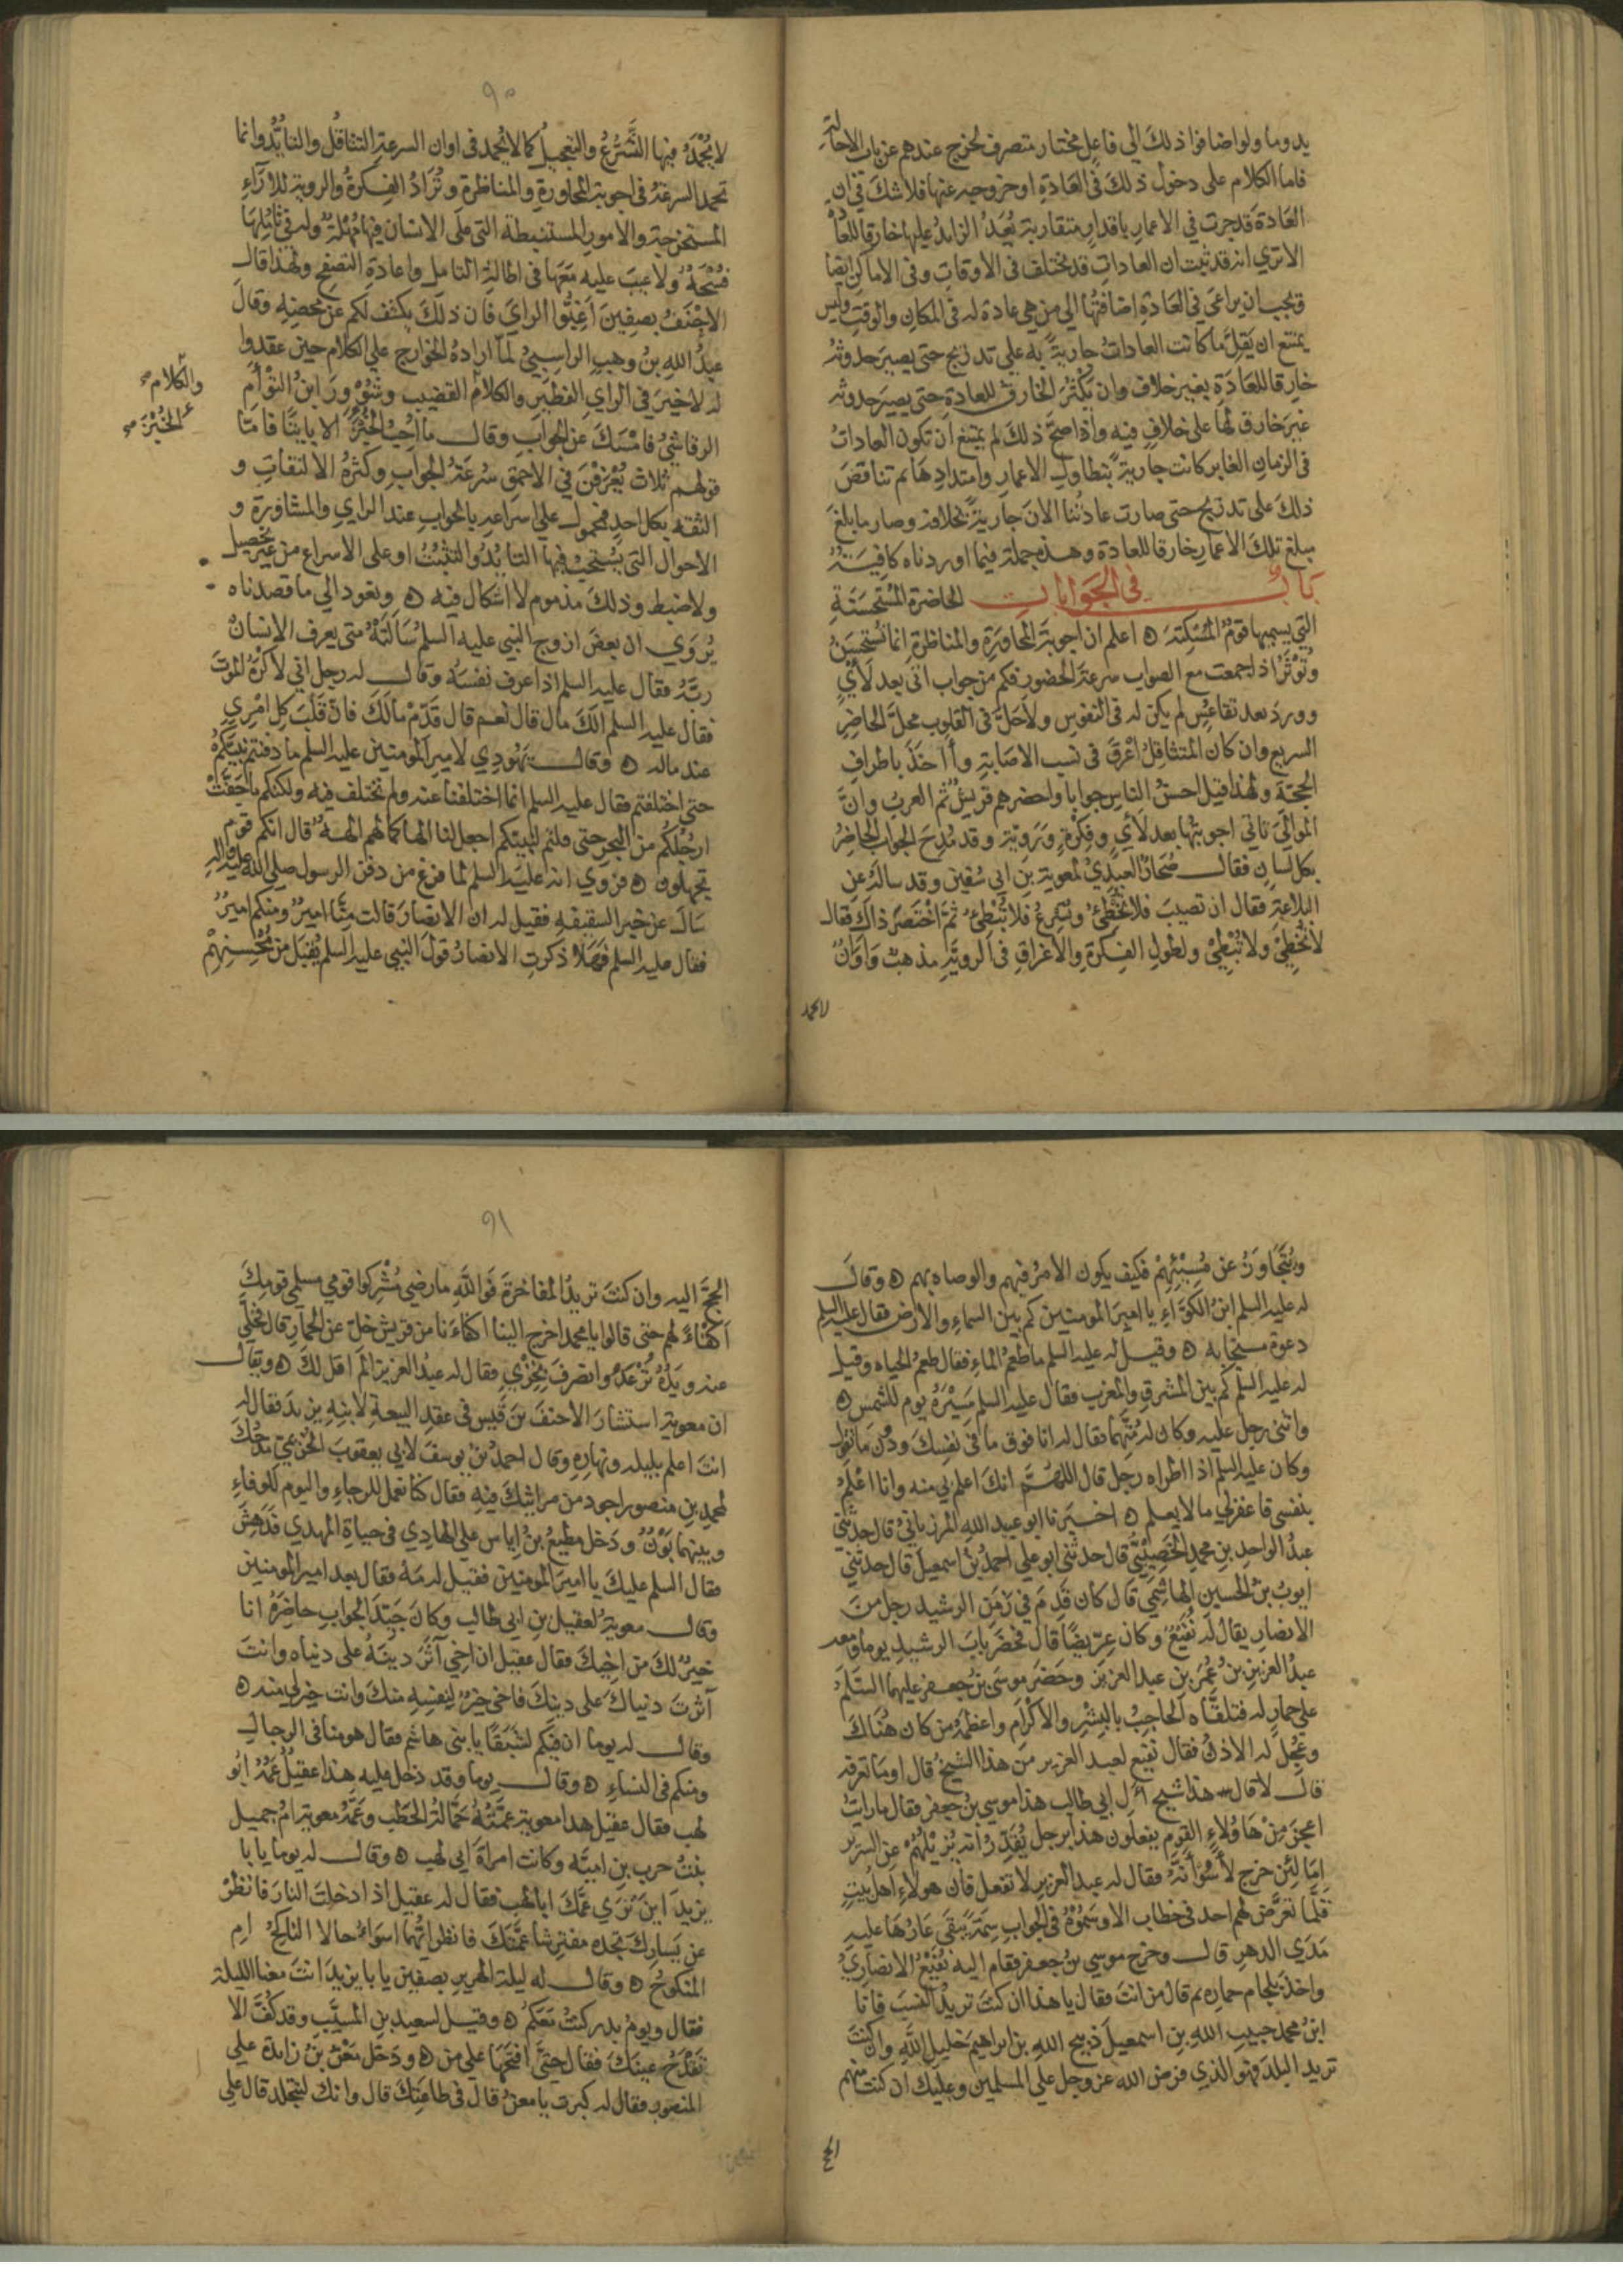 يدوما ولو اضافوا ذلك الى فاعل مختار متصرف لخرج عندهم عن باب الاحالة
فاما الكلام على دخول ذلك في العادة او خروجه عنها فلا شك في ان
العادة قد جرت في الاعمار باقدار متقاربة يعد الزايد عليها خارقا للعادة
الا تري انه قد ثبت ان العادات قد تختلف في الاوقات وفي الاماكن ايضا
ويجب ان يراعى في العادة اضافتها الي من هي عادة له في المكان والوقت وليس
يمتنع ان يقل ما كانت العادات جارية به علي تدريج حتى يصير حدوثه
خارقا للعادة بغير خلاف وان يكثر الخارق للعادة حتى يصير حدوثه
غير خارق لها على خلاف فيه واذا صح ذلك لم يمتنع ان تكون العادات
في الزمان الغابر كانت جارية بتطاول الاعمار وامتدادها ثم تناقص
ذلك على تدريج حتى صارت عادتنا الان جارية بخلافه وصار ما بلغ
مبلغ تلك الاعمار خارقا للعادة وهذه جملة فيما اوردناه كافية
باب في الجوابات الحاضرة المستحسنة
التي يسميها قوم المسكتة ه اعلم ان اجوبة المحاورة والمناظرة انما تستحسن
وتوثر اذا جمعت مع الصواب سرعة الحضور فكم من جواب اتى بعد لأي
وورد بعد تقاعس لم يكن له في النفوس ولا حل في القلوب محل الحاضر
السريع وان كان المتثاقل اعرق في نسب الاصابة وآخذ باطراف
الحجة ولهذا قيل احسن الناس جوابا واحضرهم قريش ثم العرب وان
الموالي تاتي اجوبتها بعد لأي وفكرة وروية وقد مدح الجواب الحاضر
بكل لسان فقال صحار العبدي لمعوية بن ابي سفين وقد ساله عن
البلاغة فقال ان تصيب فلا تخطئ وتسرع فلا تبطئ ثم اختصر ذاك فقال
لا تخطئ ولا تبطئ ولطول الفكرة والاغراق في الروية مذهب واوان
لا تحمد
٩٠
لا تحمد فيها التسرع والتعجيل كما لا تحمد في اوان السرعة التثاقل والتايد وانما
تحمد السرعة في اجوبة المحاورة والمناظرة وتراد الفكرة والروية للآراء
المستخرجة والامور المستنبطة التي على الانسان فيها مهلة وله في تاملها
فسحة ولا عيب عليه معها في اطالة التامل واعادة التصفح ولهذا قال
الاحنف بصفين اغبوا الراي فان ذلك يكشف لكم عن محضه وقال
عبد الله بن وهب الراسبي لما اراده الخوارج علي الكلام حين عقدوا
له لا خير في الراي الفطير والكلام القضيب وشوور ابن التوأم
والكلام
الرقاشي فامسك عن الجواب وقال ما احب الخبز الا بايتا فاما
الخبز
قولهم ثلاث يعرفن في الاحمق سرعة الجواب وكثرة الالتفات و
الثقة بكل احد فمحمول علي اسراعه بالجواب عند الراي والمشاورة و
الاحوال التى يستحب فيها التايد والتثبت او على الاسراع من غير تحصيل
ولا ضبط وذلك مذموم لا اشكال فيه ه ونعود الي ما قصدناه
يروي ان بعض ازوج النبي عليه السلم سألته متى يعرف الانسان
ربه فقال عليه السلم اذا عرف نفسه وقال له رجل اني لا اكره الموت
فقال عليه السلم الك مال قال نعم قال قدم مالك فان قلب كل امرئ
عند ماله ه وقال يهودي لامير المومنين عليه السلم ما دفنتم نبيكم
حتى اختلفتم فقال عليه السلم انما اختلفنا عنه ولم نختلف فيه ولكنكم ما جفت
ارجلكم من البحر حتى قلتم لنبيكم اجعل لنا الها كما لهم الهة قال انكم قوم
تجهلون ه وروي انه عليه السلم لما فرغ من دفن الرسول صلي الله عليه واله
سال عن خبر السقيفة فقيل له ان الانصار قالت منا امير ومنكم امير
فقال عليه السلم فهلا ذكرت الانصار قول النبي عليه السلم يقبل من محسنهم
ويتجاوز عن مسيئهم فكيف يكون الامر فيهم والوصاه بهم ه وقال
له عليه السلم ابن الكواء يا امير المومنين كم بين السماء والارض فقال عليه السلم
دعوة مستجابه ه وقيل له عليه السلم ما طعم الماء فقال طعم الحياه وقيل
له عليه السلم كم بين المشرق والمغرب فقال عليه السلم مسيرة يوم للشمس ه
واثنى رجل عليه وكان له متهما فقال له انا فوق ما في نفسك ودون ما تقول
وكان عليه السلم اذا اطراه رجل قال اللهم انك اعلم بي منه وانا اعلم
بنفسي فاغفر لي ما لا يعلم ه اخبرنا ابو عبيد الله المرزباني قال حدثني
عبد الواحد بن محمد الخصيبي قال حدثني ابو علي احمد بن اسمعيل قال حدثني
ايوب بن الحسين الهاشمي قال كان قدم في زمن الرشيد رجل من
الانصار يقال له نفيع وكان عريضا قال فحضر باب الرشيد يوما ومعه
عبد العزيز بن عمر بن عبد العزيز وحضر موسى بن جعفر عليهما السلم
على حمار له فتلقاه الحاجب بالبشر والاكرام واعظمه من كان هناك
وعجل له الاذن فقال نفيع لعبد العزيز من هذا الشيخ قال اوما تعرفه
قال لا قال هذا شيخ آل ابي طالب هذا موسي بن جعفر فقال ما رايت
اعجز من هاولاء القوم يفعلون هذا برجل يقدر انه يزيلهم عن السرير
اما لئن خرج لأسوأنه فقال له عبد العزيز لا تفعل فان هولاء اهل بيت
قلما تعرض لهم احد في خطاب الا وسموه في الجواب سمة يبقى عارها عليه
مدى الدهر قال وخرج موسي بن جعفر فقام اليه نفيع الانصاري
واخذ بلجام حماره ثم قال من انت فقال يا هذا ان كنت تريد النسب فانا
ابن محمد حبيب الله بن اسمعيل ذبيح الله بن ابراهيم خليل الله وان كنت
تريد البلد فهو الذي فرض الله عز وجل علي المسلمين وعليك ان كنت منهم
الحج
٩١
الحج اليه وان كنت تريد المفاخرة فوالله ما رضي مشركوا قومي مسلمي قومك
اكفاء لهم حتى قالوا يا محمد اخرج الينا اكفاءنا من قريش خل عن الحمار قال فخلى
عنه ويده ترعد وانصرف بخزي فقال له عبد العزيز الم اقل لك ه ويقال
ان معوية استشار الاحنف بن قيس في عقد البيعة لابنه يزيد فقال له
انت اعلم بليله ونهاره وقال احمد بن يوسف لابي يعقوب الخزيمي مدحك
لمحمد بن منصور اجود من مراثيك فيه فقال كنا نعمل للرجاء واليوم للوفاء
وبينهما بون ودخل مطيع بن اياس علي الهادي في حياة المهدي فدهش
فقال السلم عليك يا امير المومنين فقيل له مه فقال بعد امير المومنين
وقال معوية لعقيل بن ابي طالب وكان جيد الجواب حاضره انا
خير لك من اخيك فقال عقيل ان اخي آثر دينه على دنياه وانت
آثرت دنياك على دينك فاخي خير لنفسه منك وانت خير لي منه ه
وقال له يوما ان فيكم لشبقا يا بني هاشم فقال هو منا في الرجال
ومنكم في النساء ه وقال يوما وقد دخل عليه هذا عقيل عمه ابو
لهب فقال عقيل هذا معوية عمته حمالة الحطب وعمة معوية ام جميل
بنت حرب بن امية وكانت امراة ابي لهب ه وقال له يوما يا با
يزيد اين ترى عمك ابا لهب فقال له عقيل اذا دخلت النار فانظر
عن يسارك تجده مفترشا عمتك فانظر ايهما اسواء حالا الناكح ام
المنكوح ه وقال له ليلة الهرير بصفين يا با يزيد انت معنا الليلة
فقال ويوم بدر كنت معكم ه وقيل لسعيد بن المسيب وقد كف الا
تقدح عينك فقال حتى افتحها على من ه ودخل معن بن زايدة على
المنصور فقال له كبرت يا معن قال في طاعتك قال وانك لتتجلد قال علي